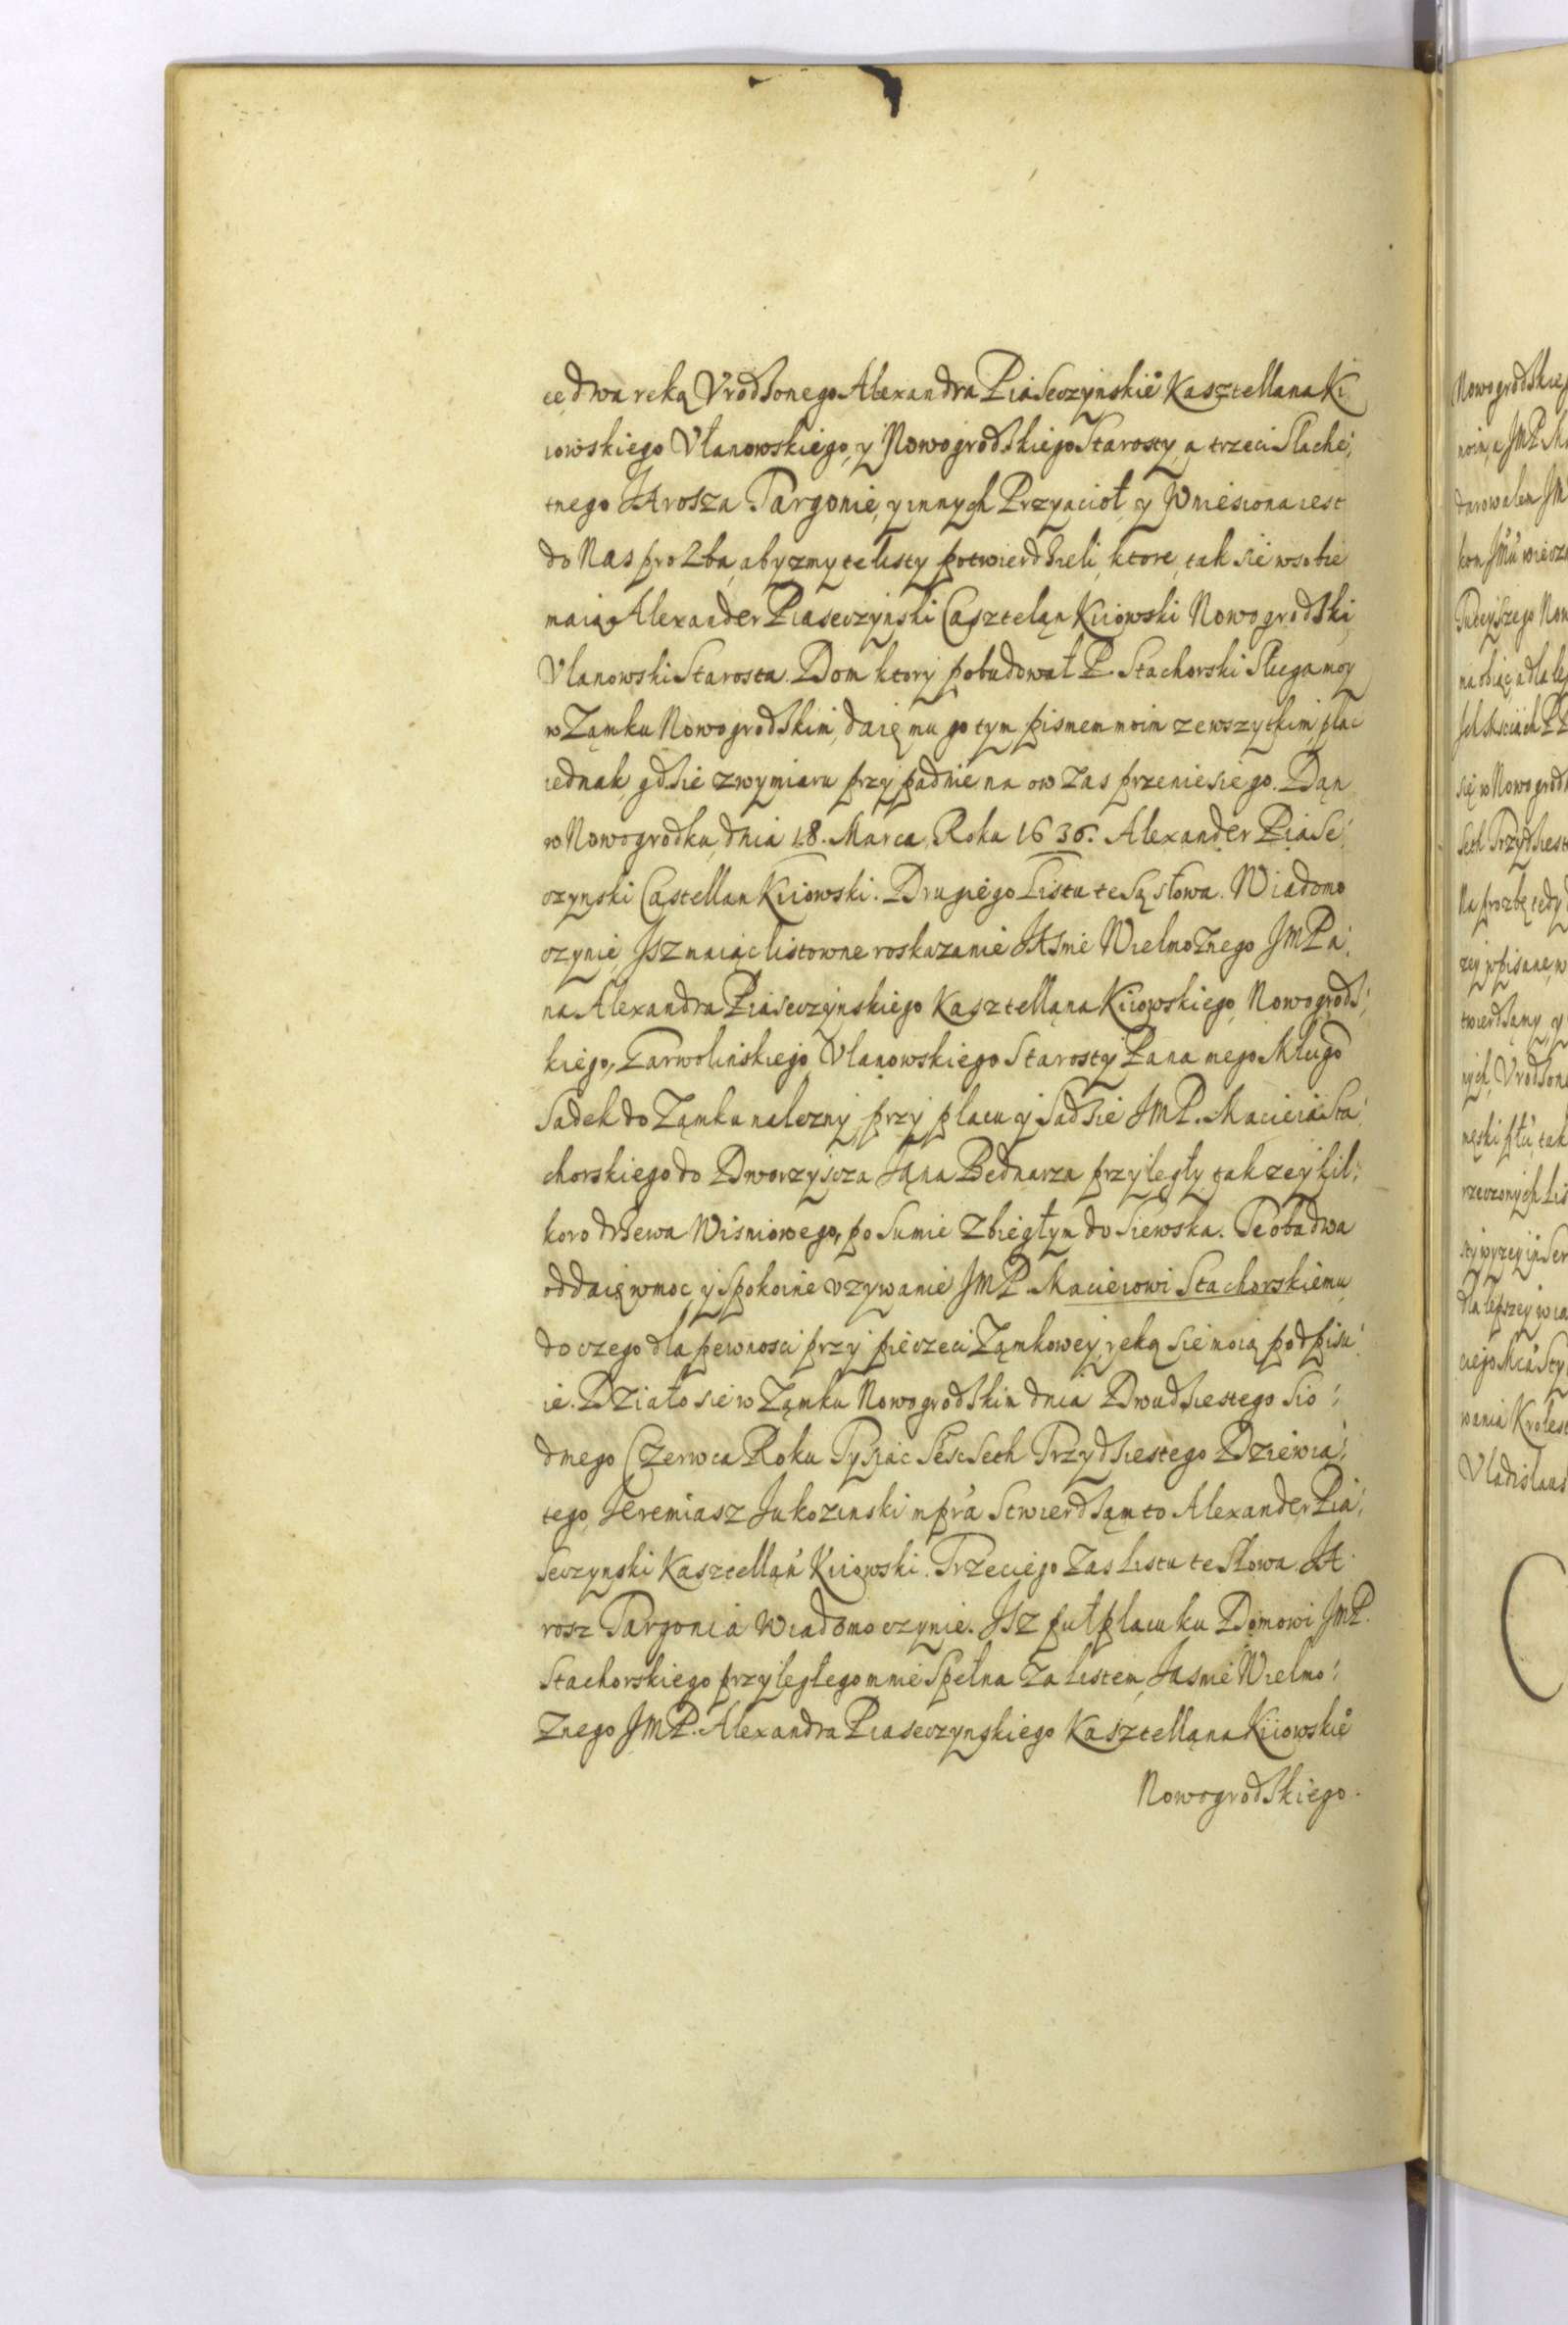 ce dwa reką Vrodzonego Alexandra Piaseczynskie° Kasztellana Ki
iowskiego Vłanowskiego, y Nowogrodskiego Starosty, a trzeci Slache:
tnego JArosza Targonie, y innych Przyacioł, y Wniesiona iest
do Nas proźba, abyzmy te listy potwierdzieli, ktore, tak sie w sobie
maią Alexander Piaseczynski Casztelan Kiiowski Nowogrodski
Vlanowski Starosta. Dom ktory pobudował P. Stachorski Sługa moy
w Zamku Nowogrodskim, daię mu go tym pismem moim ze wszytkim, plac
iednak gdzie z wymiaru przypadnie na ow Zas przeniesie go. Dan
w Nowogrodku, dnia 18. Marca, Roku 1636. Alexander Piase:
czynski Castellan Kiiowski. Drugiego Listu te są słowa. Wiadomo
czynię Jsz maiąc listowne roskazanie JAsnie Wielmożnego JMPa:
na Alexandra Piaseczynskiego Kasztellana Kiiowskiego, Nowogrods:
kiego, Zarwolinskiego Vlanowskiego Starosty Pana mego Mługo
Sadek do Zamku nalezny, przy placu y Sadzie JMP. Macieia Sta:
chorskiego do Dworzyscza Jana Bednarza przyległy, takzey kil:
koro drzewa Wisniowego, po Sumie Zbiegłym do Siewska. Te obadwa
oddaię w moc y Spokoine vzywanie JMP. Macieiowi Stachorskiemu
do czego dla pewnosci przy pieczeci Zamkowey, ręką się moią podpisu:
ie. Działo sie w Zamku Nowogrodskim dnia Dwudziestego Sio:
dmego Czerwca Roku Tysiac Sescseth Trzydziestego Dziewia:
tego Jeremiasz Jukozinski mpra Stwierdzam to Alexander Pia:
seczynski Kasztellan Kiiowski. Trzeciego Zas Listu te Słowa. JA
rosz Targonia Wiadomo czynie. Jsz puł placu ku Domowi JMP.
Stachorskiego przyległego mnie Spełna Za listem, Jasnie Wielmo:
Znego JMP. Alexandra Piaseczynskiego Kasztellana Kiiowskie°
Nowogrodskiego.